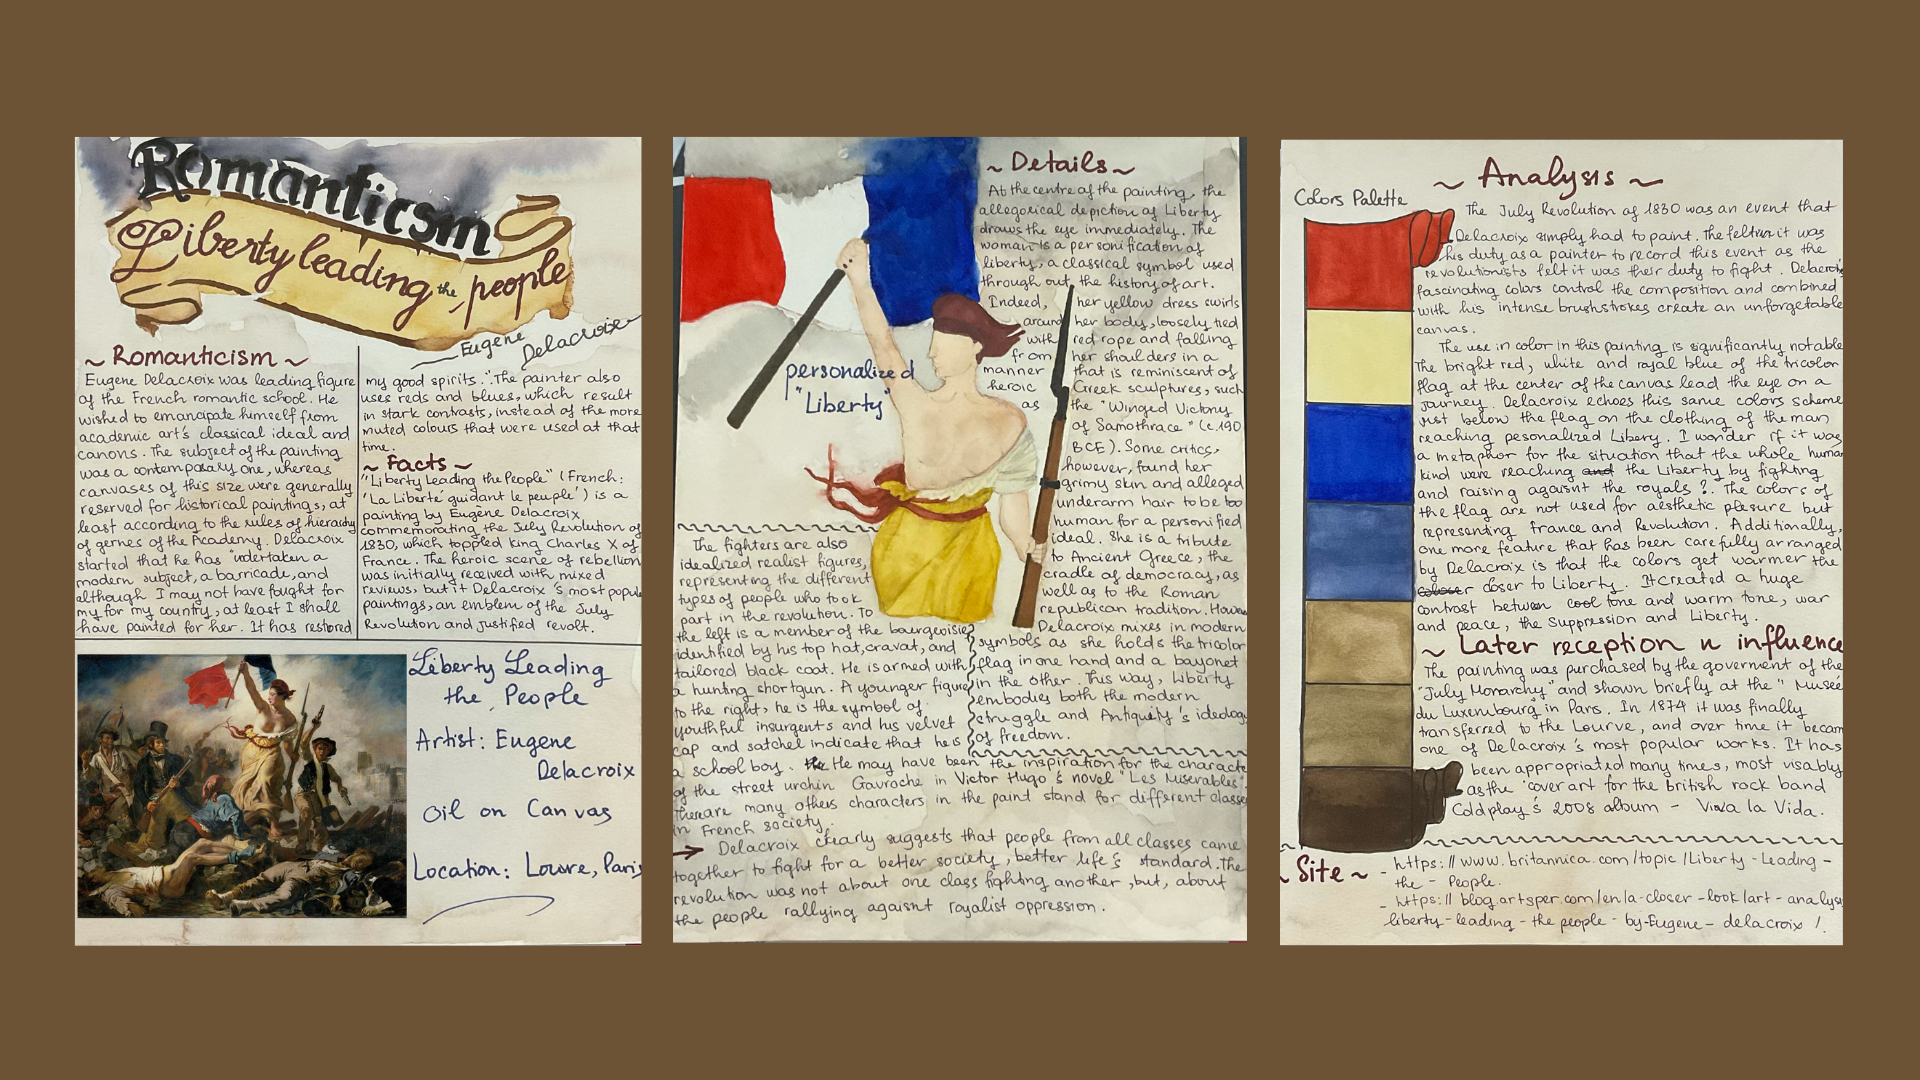 Romanticsm
Liberty leading the people
Eugene Delacroix
~ Romanticism ~
Eugene Delacroix was leading figure
of the French romantic school. He
wished to emancipate himself from
academic art's classical ideal and
canons. The subject of the painting
was a contemporary one, whereas
canvases of this size were generally
reserved for historical paintings, at
least according to the rules of hierarchy
of gernes of the Academy. Delacroix
started that he has "undertaken a
modern subject, a barricade, and
although I may not have fought for
my for my country, at least I shall
have painted for her. It has restored
my good spirits.". The painter also
uses reds and blues, which result
in stark contrasts, instead of the more
muted colours that were used at that
time.
~ Facts ~
"Liberty leading the People" (French:
'La Liberté guidant le peuple') is a
painting by Eugène Delacroix
commemorating the July Revolution of
1830, which toppled King Charles X of
France. The heroic scene of rebellion
was initially received with mixed
reviews, but it Delacroix 's most popul
paintings, an emblem of the July
Revolution and justified revolt.
Liberty Leading
the People
Artist: Eugene
Delacroix
Oil on Canvas
Location: Louvre, Paris
~ Details ~
At the centre of the painting, the
allegorical depiction of Liberty
draws the eye immediately. The
woman is a personification of
liberty, a classical symbol used
through out the history of art.
Indeed, her yellow dress swirls
around her body, loosely tied
with red rope and falling
from her shoulders in a
manner that is reminiscent of
heroic Greek sculptures, such
as the "Winged Victory
of Samothrace" (c.190
BCE). Some critcs,
however, found her
grimy skin and alleged
underarm hair to be too
human for a personified
ideal. She is a tribute
to Ancient Greece, the
cradle of democracy, as
well as to the Roman
republican tradition. Howe
Delacroix mixes in modern
symbols as she holds the tricolor
flag in one hand and a bayonet
in the other. This way, Liberty
embodies both the modern
struggle and Antiquity 's ideolog
of freedom.
personalized
"Liberty"
The fighters are also
idealized realist figures,
representing the different
types of people who took
part in the revolution. To
the left is a member of the bourgeoisie
identified by his top hat, cravat, and
tailored black coat. He is armed with
a hunting shortgun. A younger figure
to the right, he is the symbol of
youthful insurgents and his velvet
cap and satchel indicate that he is
a school boy. He may have been the inspiration for the characte
of the street urchin Gavroche in Victor Hugo's novel "Les Miserables".
There are many others characters in the paint stand for different classe
in French society.
Delacroix clearly suggests that people from all classes came
together to fight for a better society, better life's standard. The
revolution was not about one class fighting another, but, about
the people rallying agaisnt royalist oppression.
~ Analysis ~
Colors Palette
The July Revolution of 1830 was an event that
Delacroix simply had to paint. The felt it was
his duty as a painter to record this event as the
revolutionists felt it was their duty to fight. Delacroix
fascinating colors control the composition and combined
with his intense brushstrokes create an unforgetable
canvas.
The use in color in this painting is significantly notable
The bright red, white and royal blue of the tricolor
flag at the center of the canvas lead the eye on a
journey. Delacroix echoes this same colors scheme
just below the flag on the clothing of the man
reaching pesonalized Libery. I wonder if it was
a metaphor for the situation that the whole human
kind were reaching and the Liberty by fighting
and raising agaisnt the royals ?. The colors of
the flag are not used for aesthetic plesure but
representing france and Revolution. Additionally,
one more feature that has been carefully arranged
by Delacroix is that the colors get warmer the
closer to Liberty. It created a huge
contrast between cool tone and warm tone, war
and peace, the Suppression and Liberty.
~ Later reception n influence
The painting was purchased by the goverment of the
"July Monarchy" and shown briefly at the " Musée
du Luxembourg in Paris. In 1874 it was finally
transferred to the Lourve, and over time it becam
one of Delacroix 's most popular works. It has
been appropriated many times, most visably
as the cover art for the british rock band
Coldplay's 2008 album - Viva la Vida.
~ Site ~
- https://www.britannica.com/topic/Liberty-Leading-
the-People.
- https://blog.artsper.com/en/a-closer-look/art-analys
liberty-leading-the people-by-Eugene-delacroix /.